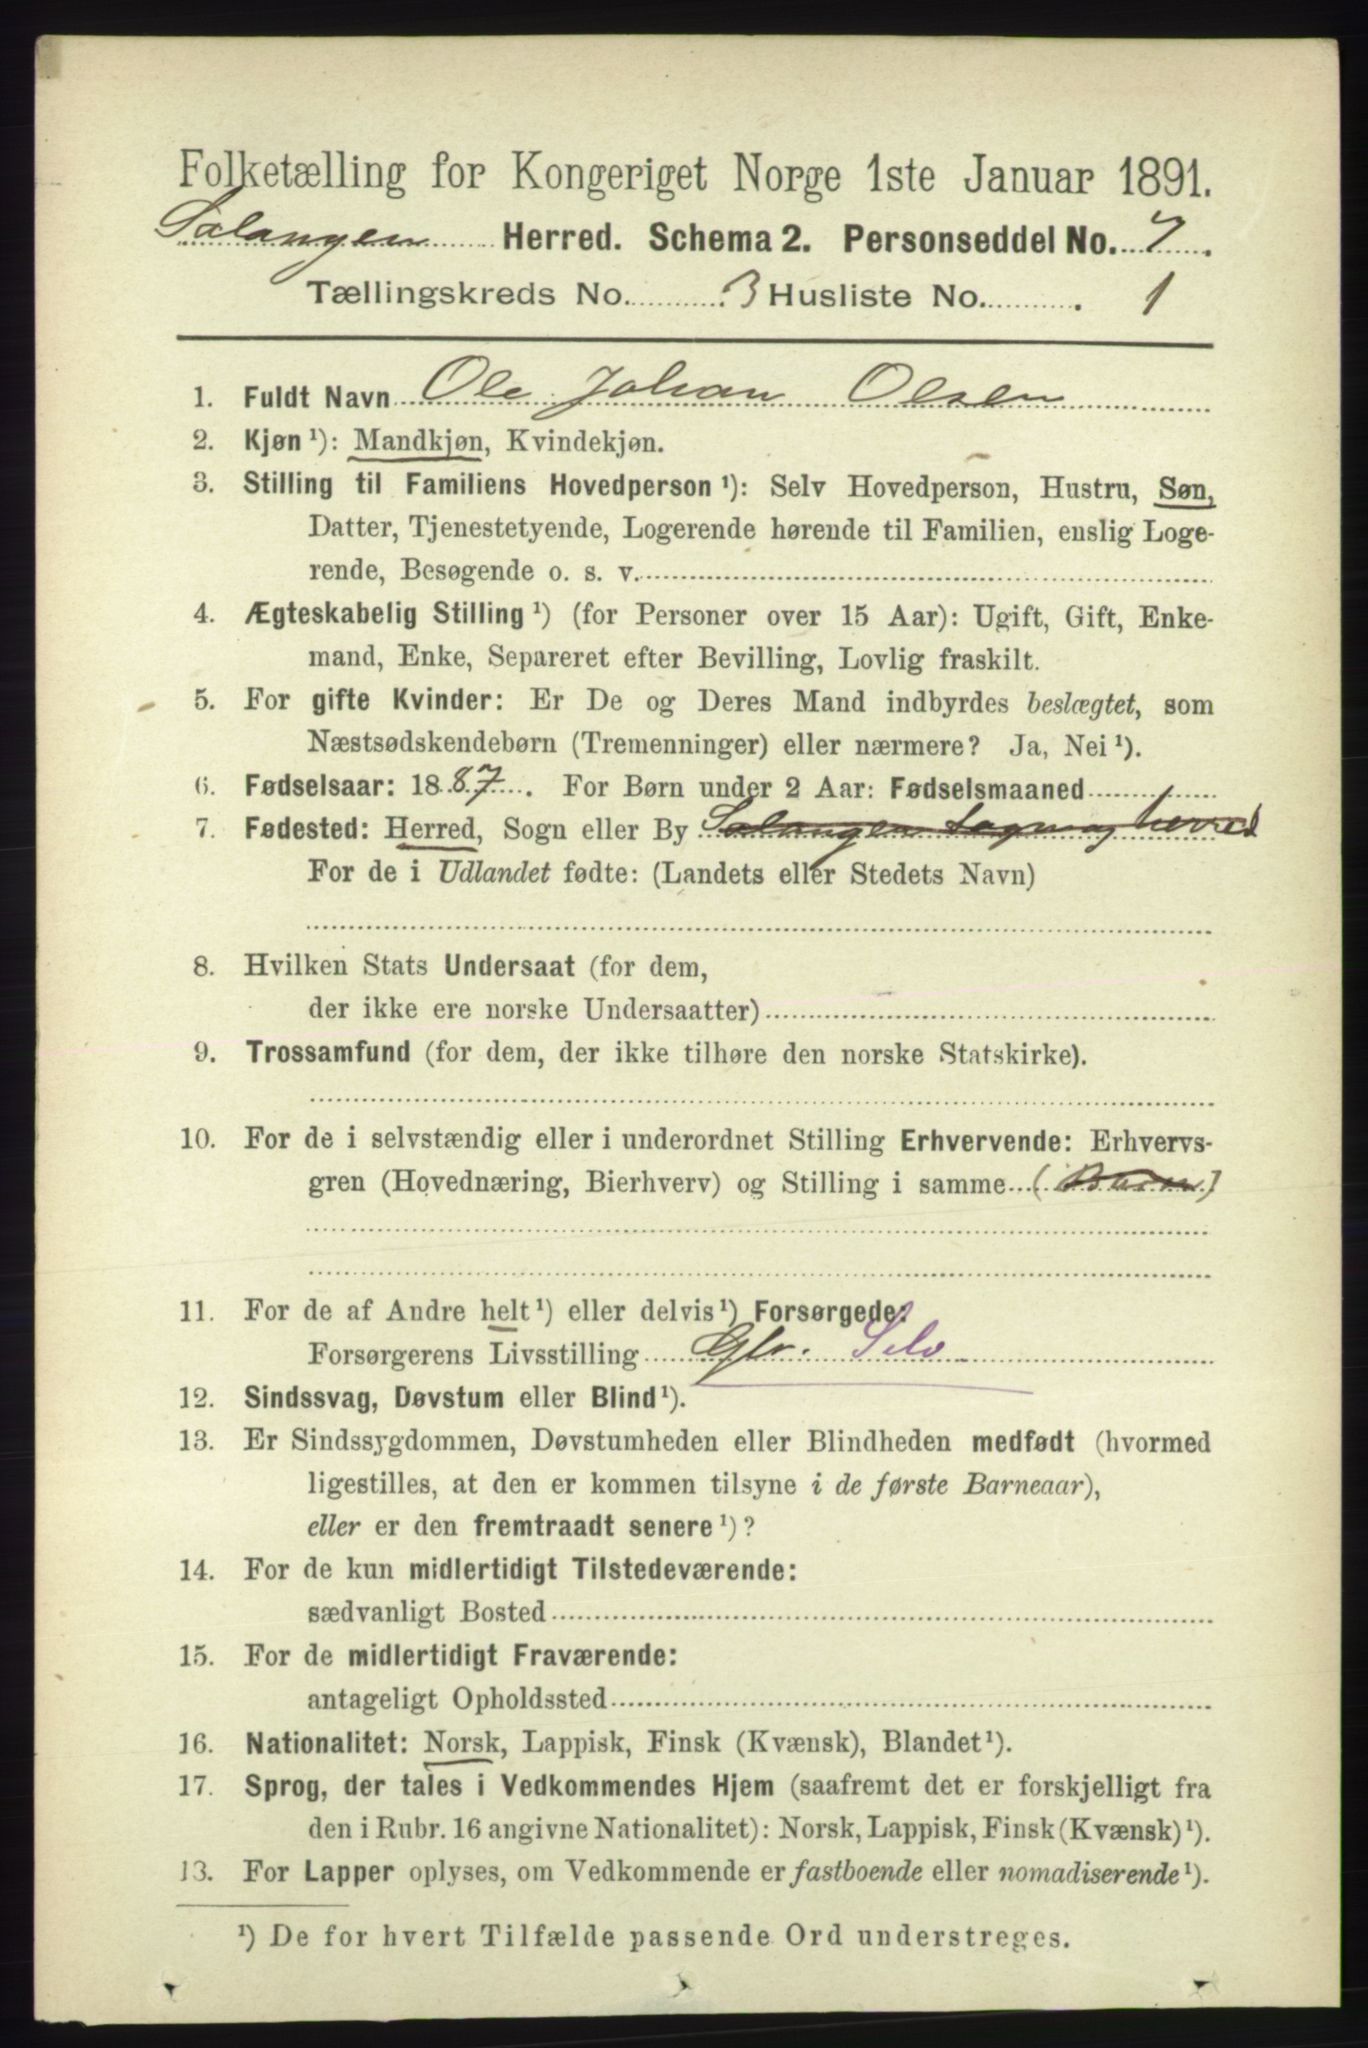 Folketælling for Kongeriget Norge 1ste Januar 1891.
Salangen Herred. Schema 2. Personseddel No. 7.
Tællingskreds No. 3 Husliste No. 1
1. Fuldt Navn Ole Johan Olsen
2. Kjøn ¹): Mandkjøn, Kvindekjøn.
3. Stilling til Familiens Hovedperson ¹): Selv Hovedperson, Hustru, Søn,
Datter, Tjenestetyende, Logerende hørende til Familien, enslig Loge-
rende, Besøgende o. s. v.
4. Ægteskabelig Stilling ¹) (for Personer over 15 Aar): Ugift, Gift, Enke-
mand, Enke, Separeret efter Bevilling, Lovlig fraskilt.
5. For gifte Kvinder: Er De og Deres Mand indbyrdes beslægtet, som
Næstsødskendebørn (Tremenninger) eller nærmere? Ja, Nei ¹).
6. Fødselsaar: 1887. For Børn under 2 Aar: Fødselsmaaned
7. Fødested: Herred, Sogn eller By Salangen sogn og herred
For de i Udlandet fødte: (Landets eller Stedets Navn)
8. Hvilken Stats Undersaat (for dem,
der ikke ere norske Undersaatter)
9. Trossamfund (for dem, der ikke tilhøre den norske Statskirke).
10. For de i selvstændig eller i underordnet Stilling Erhvervende: Erhvervs-
gren (Hovednæring, Bierhverv) og Stilling i samme (Barn)
11. For de af Andre helt ¹) eller delvis ¹) Forsørgede:
Forsørgerens Livsstilling Glv. Selv
12. Sindssvag, Døvstum eller Blind ¹).
13. Er Sindssygdommen, Døvstumheden eller Blindheden medfødt (hvormed
ligestilles, at den er kommen tilsyne i de første Barneaar),
eller er den fremtraadt senere ¹)?
14. For de kun midlertidigt Tilstedeværende:
sædvanligt Bosted
15. For de midlertidigt Fraværende:
antageligt Opholdssted
16. Nationalitet: Norsk, Lappisk, Finsk (Kvænsk), Blandet ¹).
17. Sprog, der tales i Vedkommendes Hjem (saafremt det er forskjelligt fra
den i Rubr. 16 angivne Nationalitet): Norsk, Lappisk, Finsk (Kvænsk) ¹).
13. For Lapper oplyses, om Vedkommende er fastboende eller nomadiserende ¹).
¹) De for hvert Tilfælde passende Ord understreges.